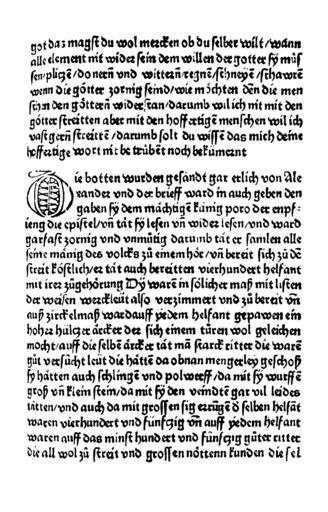 got daz magst du wol mercken ob du selber wilt/wann
alle element nit wider sein dem willen der gotter sy müs
sen pliczē/donern vnd wittern/regnē/schneyē/schawrē
wenn die götter zornig seind/wie möchten dēn die men
schen den göttern widerstan/darumb wil ich nit mit den
götter streitten aber mit den hoffertigen menschen wil ich
vast gern streittē/darumb solt du wissē das mich deine
hoffertige wort nit betrübent noch bekümernt
Die botten wurden gesandt gar erlich von Ale
xander vnd der brieff ward in auch geben den
gaben sy dem mächtigē künig poro der enpf-
ieng die epistel/vñ tät sy lesen vñ wider lesen/vnd ward
gar fast zornig vnd vnmütig darumb tät er samlen alle
seine mänig des volcks zů einem hör/vñ bereit sich zů dē
streit köstlich/er tät auch bereitten vierhundert helfant
mit irer zůgehörung Dy warē in sölicher maß mit listen
der weisen werckleüt also verzimmert vnd zů bereit vñ
auß zirckelmaß ward auff yedem helfant gepawen ein
hoher hülczer ärcker der sich einem türen wol geleichen
mocht/auff die selben ärcker tät mā starck ritter die warē
gůt versůcht leüt die hättē da obnan mengerley geschoß
sy hätten auch schlingē vnd polwerff/da mit sy wurffē
groß vñ klein stein/da mit sy den veindtē gar vil leides
tätten/vnd auch da mit grossen sig errügē d̕ selben helfāt
waren vierhundert vnd fünfczig vñ auff yedem helfant
waren auff das minst hundert vnd fünfczig gůter ritter
die all wol zů streit vnd grossen nöttenn kunden die sel